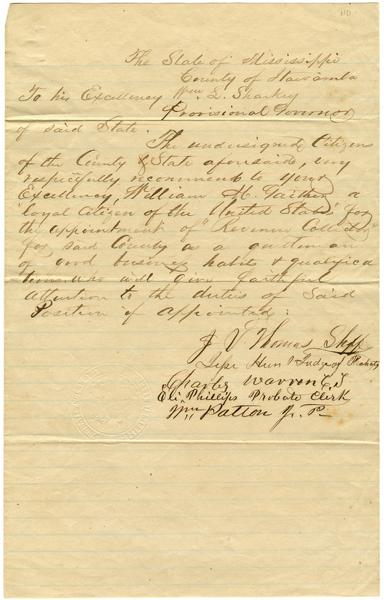 The State of Mississippi
County of Itawamba
To his Excellency Wm L. Sharkey
Provisional Governor
of said State.
The undersigned Citizens
of the County & State aforesaid, very
respectfully recommend to your
Excellency, William H. a
loyal Citizen of the United States for
the appointment of "Revenue Collector"
for said County as a gentleman
of good business habits & qualifica
tions who will give faithful
attention to the duties of Said
Position if appointed:
J V Thomas Shff
Judge of Probate
Charles Warren
Eli Phillips Probate Clerk
Wm Patton J. P.